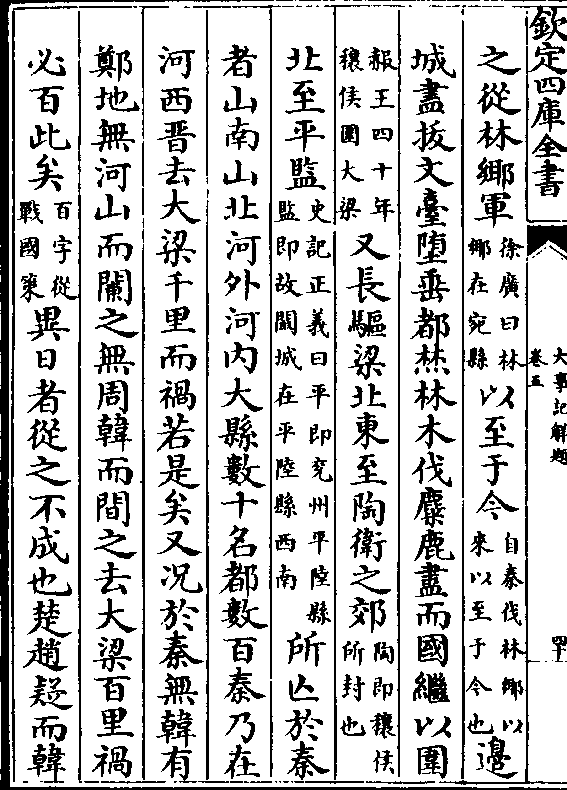 欽定四庫全書
大事記解題
卷五
之從林鄉軍徐廣曰林鄉在宛縣以至于今自秦伐林鄉以來以至于今也邊
城盡拔文臺堕垂都焚林木伐麋鹿盡而國繼以圍
赧王四十年穰侯圍大梁又長驅梁北東至陶衛之郊陶即穰侯所封也
北至平監史記正義曰平即兖州平陸縣監即故闞城在平陸縣西南所亡於秦
者山南山北河外河内大縣數十名都數百秦乃在
河西晉去大梁千里而禍若是矣又况於秦無韓有
鄭地無河山而闌之無周韓而間之去大梁百里禍
必百此矣百字從戰國策異日者從之不成也楚趙疑而韓